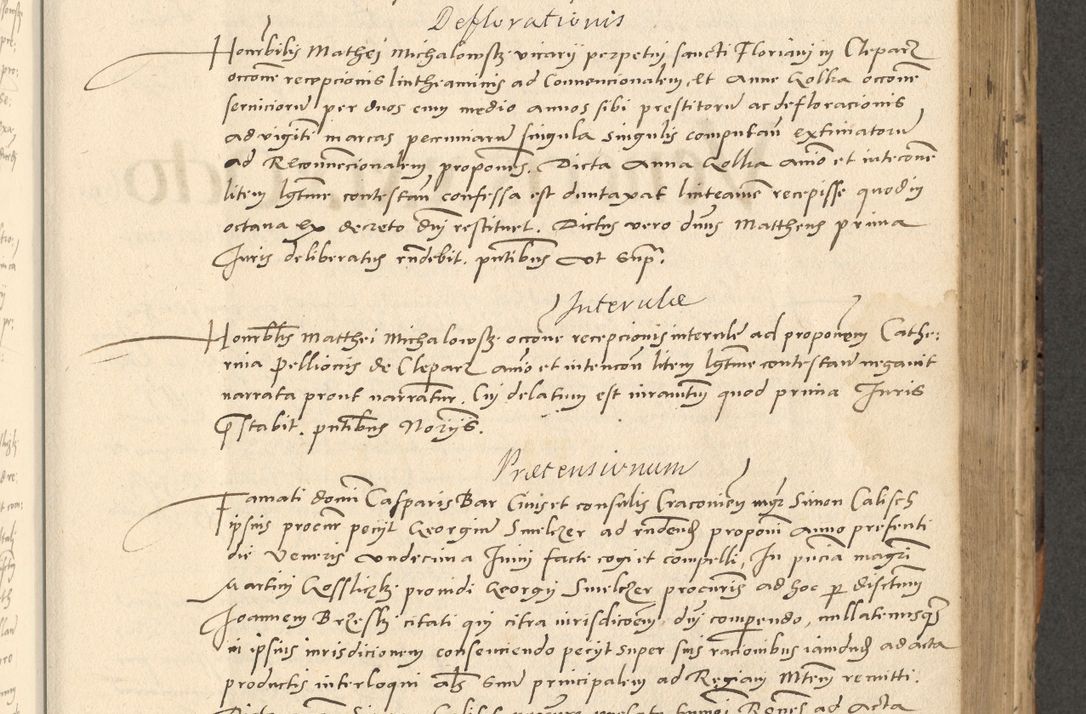 Deflorationis
Honorbilis Mathei Michalowsky vicarii perpetui sancti Floriani in Cleparz
occone recepcionis lintheaminis ad Conuencionalem, et Anne Golka occone
seruiciorum per duos cum medio annos sibi prestitorum ac defloracionis
ad viginti marcas pecuniarum singula singulis computan extimatorum
ad Reconuencionalem propones. Dicta Anna Golka animo et intecone
litem lgtme contestan confessa est duntaxat linteamen recepisse quod in
octaua ex decreto dni restituet. Dictus vero dnus Mattheus prima
Juris deliberatus rndebit. pntibus vt supra.
Interulae
Honorbilis Matthei Michalowsky occone recepcionis interule ad proponem Cathe:
rina Pellionis de Cleparz animo et intencon litem lgtme contestan negauit
narrata prout narrantur. Cui delatum est iuramtum quod prima Juris
Prstabit. pntibus Noriis.
Praetensionum
Famati domini Casparis Bar Ciuis et consulis Cracouien mgr Simon Calisch
ipsius procur petyt Georgium Smelczer ad rndendum proponi anno presenti
die Veneris vndecima Junii facte cogi et compelli, In pncia magri
Martini Gossliczky prouidi Georgii Smelczer procuris ad hoc per disctum
Joannem Brzesky citati qui citra iurisdicoem dni compendo, nullatenusque
in ipsius iurisdicionem consenciendo petyt super suis racionibus iamdudum ad acta
productis interloqui als Suum principalem ad Regiam Mtem remitti.